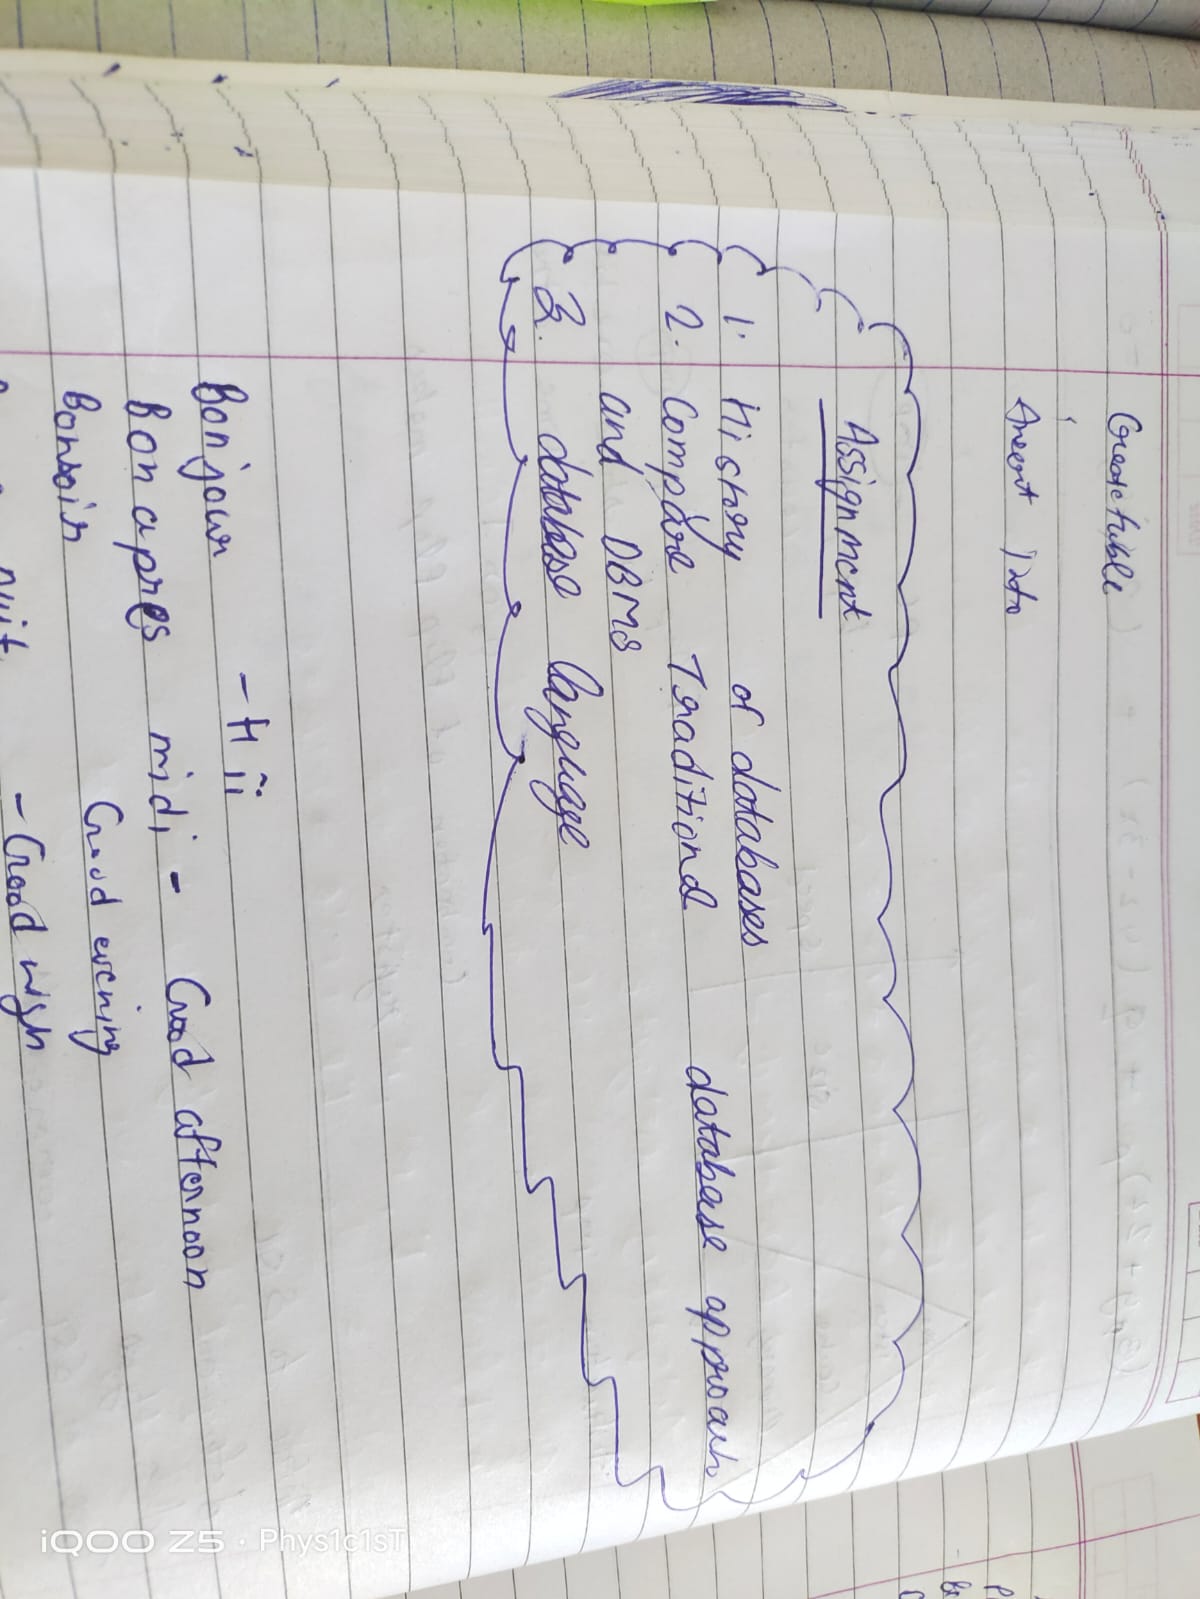 Create table
Insert Into
Assignment
1. History of databases
2. Compare Traditional database approach
and DBMS
3. database language
Bonjour - Hii
Bon apres midi - Good afternoon
Bonsoir Good evening
nuit - Good nigh
iQOO Z5 · Phys1c1sT